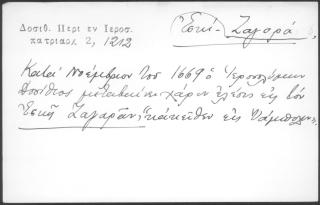 Δοσιθ. Περι εν Ιεροσ.
πατριαρχ 2, 1212
Ἐσκί- Ζαγορά
Κατά Νοέμβριον του 1669 ὁ Ἱεροσολύμων
Δοσίθεος μεταβαίνει χάριν ἐλέους εἰς τὸν
Ἐσκῆ Ζαγαρᾶν, "κἀκεῖθεν εἰς Γιάμπολην